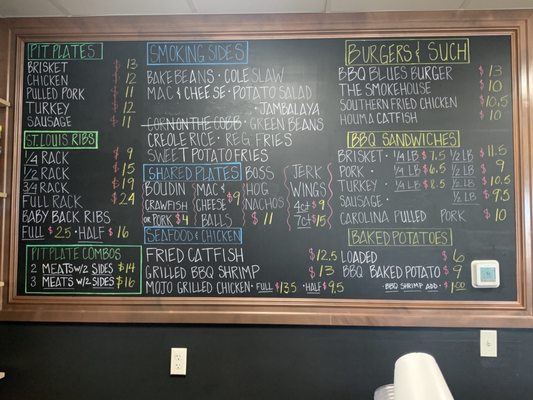 PIT PLATES
BRISKET $13
CHICKEN $12
PULLED PORK $11
TURKEY $12
SAUSAGE $11
ST. LOUIS RIBS
1/4 RACK $9
1/2 RACK $15
3/4 RACK $19
FULL RACK $24
BABY BACK RIBS
FULL $25 · HALF $16
PIT PLATE COMBOS
2 MEATS W/2 SIDES $14
3 MEATS W/2 SIDES $16
SMOKING SIDES
BAKE BEANS · COLE SLAW
MAC & CHEESE · POTATO SALAD
· JAMBALAYA
CORN ON THE COBB · GREEN BEANS
CREOLE RICE · REG FRIES
SWEET POTATO FRIES
SHARED PLATES
BOUDIN
CRAWFISH
OR PORK $4
MAC &
CHEESE $9
BALLS
BOSS
HOG
NACHOS
$11
JERK
WINGS
4ct $9
7ct $15
SEAFOOD & CHICKEN
FRIED CATFISH $12.5
GRILLED BBQ SHRIMP $13
MOJO GRILLED CHICKEN · FULL $13.5 · HALF $9.5
BURGERS & SUCH
BBQ BLUES BURGER $13
THE SMOKEHOUSE $10
SOUTHERN FRIED CHICKEN $10.5
HOUMA CATFISH $10
BBQ SANDWICHES
BRISKET · 1/4 LB $7.5 1/2 LB $11.5
PORK · 1/4 LB $6.5 1/2 LB $9
TURKEY · 1/4 LB $8.5 1/2 LB $10.5
SAUSAGE · 1/2 LB $9.5
CAROLINA PULLED PORK $10
BAKED POTATOES
LOADED $6
BBQ BAKED POTATO $9
· BBQ SHRIMP ADD · $1.00